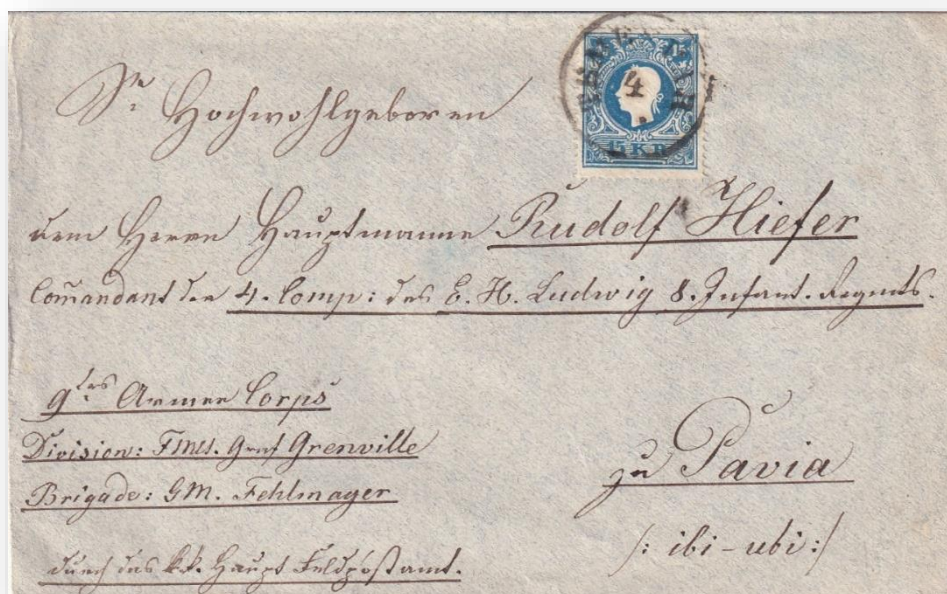 15 KR
4
Sr. Hochwohlgeboren
dem Herrn Hauptmanne Rudolf Hiefer
Com̄andant der 4. Comp: des E. H. Ludwig 8. Infant. Regmts.
9tes Armee Corps
Division: FML. Graf Grenville
Brigade: GM. Fehlmayer
durch das kk. Haupt Feldpostamt.
zu Pavia
/: ibi-ubi :/